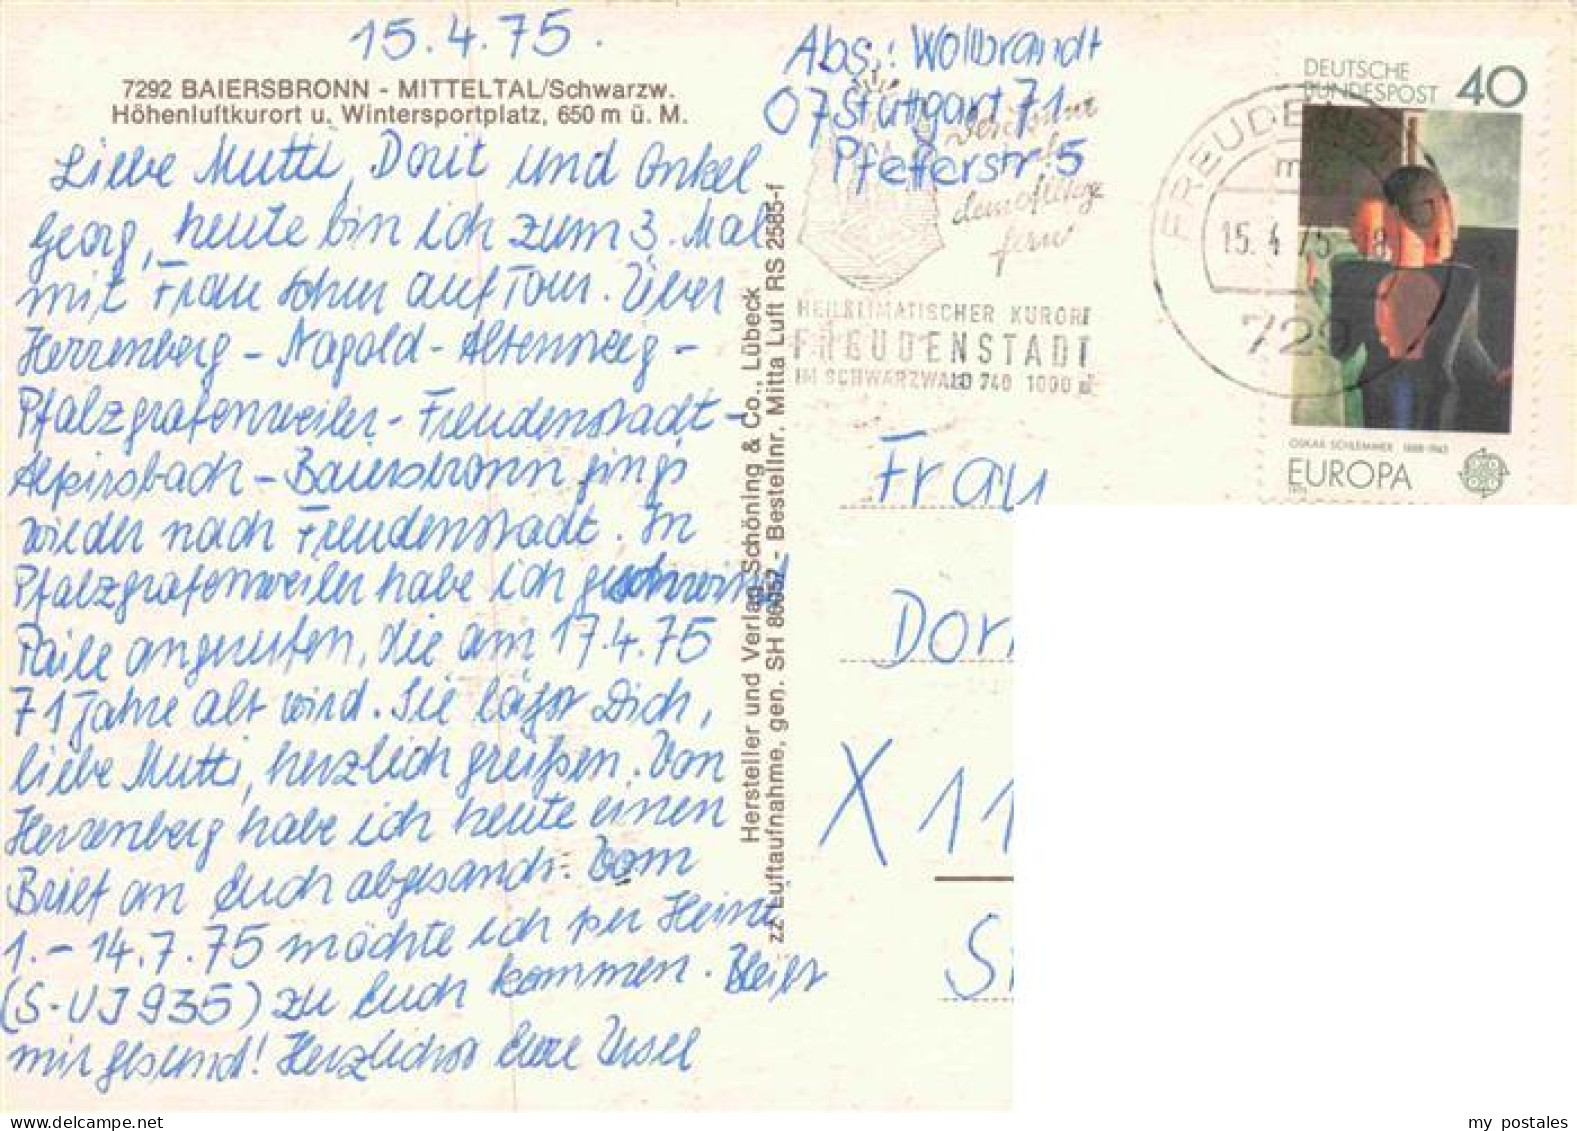 15.4.75.
7292 BAIERSBRONN - MITTELTAL/Schwarzw.
Höhenluftkurort u. Wintersportplatz, 650 m ü. M.
Liebe Mutti, Dorit und Onkel
Georg, heute bin ich zum 3. Mal
mit Frau Sohn auf Tour. Über
Herrenberg - Nagold - Altensteig -
Pfalzgrafenweiler - Freudenstadt -
Alpirsbach - Baiersbronn gings
wieder nach Freudenstadt. In
Pfalzgrafenweiler habe ich geschwind
angerufen, die am 17.4.75
71 Jahre alt wird. Sie läßt Dich,
liebe Mutti, herzlich grüßen. Von
Herrenberg habe ich heute einen
Brief an Euch abgesandt. Vom
1.-14.7.75 möchte ich per
(S-UJ 935) zu Euch kommen. Bleibt
mir gesund! Herzlichst Eure Ursel
Hersteller und Verlag Schöning & Co., Lübeck
zz Luftaufnahme, gen. SH 86057 - Bestellnr. Mitta Luft RS 2585-f
Abs.: Wollbrandt
07 Stuttgart 71
Pfefferstr. 5
dem Alltag
fern
HEILKLIMATISCHER KURORT
FREUDENSTADT
IM SCHWARZWALD 740 1000 m
FREUDENST
15.4.75
729
DEUTSCHE
BUNDESPOST 40
OSKAR SCHLEMMER 1888-1943
EUROPA
1975
Frau
Dor
X 11
S
my postales